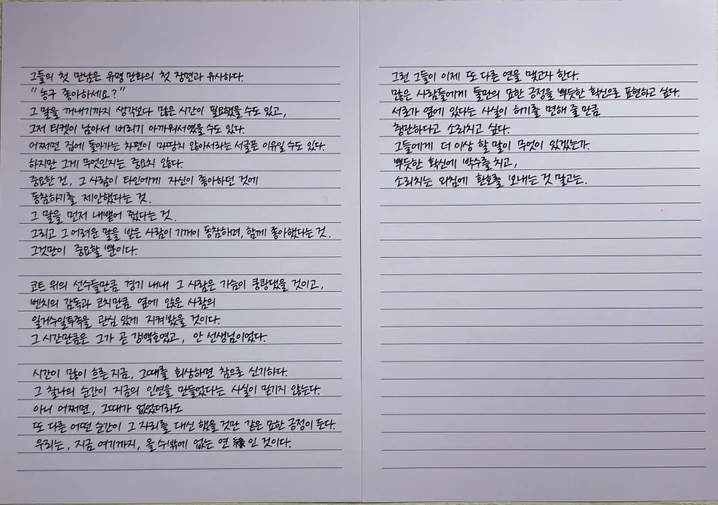 그들의 첫 만남은 유명 만화의 첫 장면과 유사하다.
"농구 좋아하세요?"
그 말을 꺼내기까지 생각보다 많은 시간이 필요했을 수도 있고,
그저 티켓이 남아서 버리기 아까워서였을 수도 있다.
어쩌면 집에 돌아가는 차편이 마땅치 않아서라는 서글픈 이유일 수도 있다.
하지만 그게 무엇인지는 중요치 않다.
중요한 건, 그 사람이 타인에게 자신이 좋아하던 것에
동참하기를 제안했다는 것.
그 말을 먼저 내뱉어 줬다는 것.
그리고 그 어려운 말을 받은 사람이 기꺼이 동참하며, 함께 좋아했다는 것.
그것만이 중요할 뿐이다.
코트 위의 선수들만큼 경기 내내 그 사람은 가슴이 쿵쾅댔을 것이고,
벤치의 감독과 코치만큼 옆에 앉은 사람의
일거수일투족을 관심 있게 지켜봤을 것이다.
그 시간만큼은 그가 곧 강백호였고, 안 선생님이었다.
시간이 많이 흐른 지금, 그때를 회상하면 참으로 신기하다.
그 찰나의 순간이 지금의 인연을 만들었다는 사실이 믿기지 않는다.
아니 어쩌면, 그때가 없었더라도
또 다른 어떤 순간이 그 자리를 대신 했을 것만 같은 묘한 긍정이 든다.
우리는, 지금 여기까지, 올 수밖에 없는 연 인 것이다.
그런 그들이 이제 또 다른 연을 맺고자 한다.
많은 사람들에게 둘만의 묘한 긍정을 뿌듯한 확신으로 표현하고 싶다.
서로가 옆에 있다는 사실이 허기를 면해 줄 만큼
청난하다고 소리치고 싶다.
그들에게 더 이상 할 말이 무엇이 있겠는가.
뿌듯한 확신에 박수를 치고,
소리치는 외침에 환호를 보내는 것 말고는.